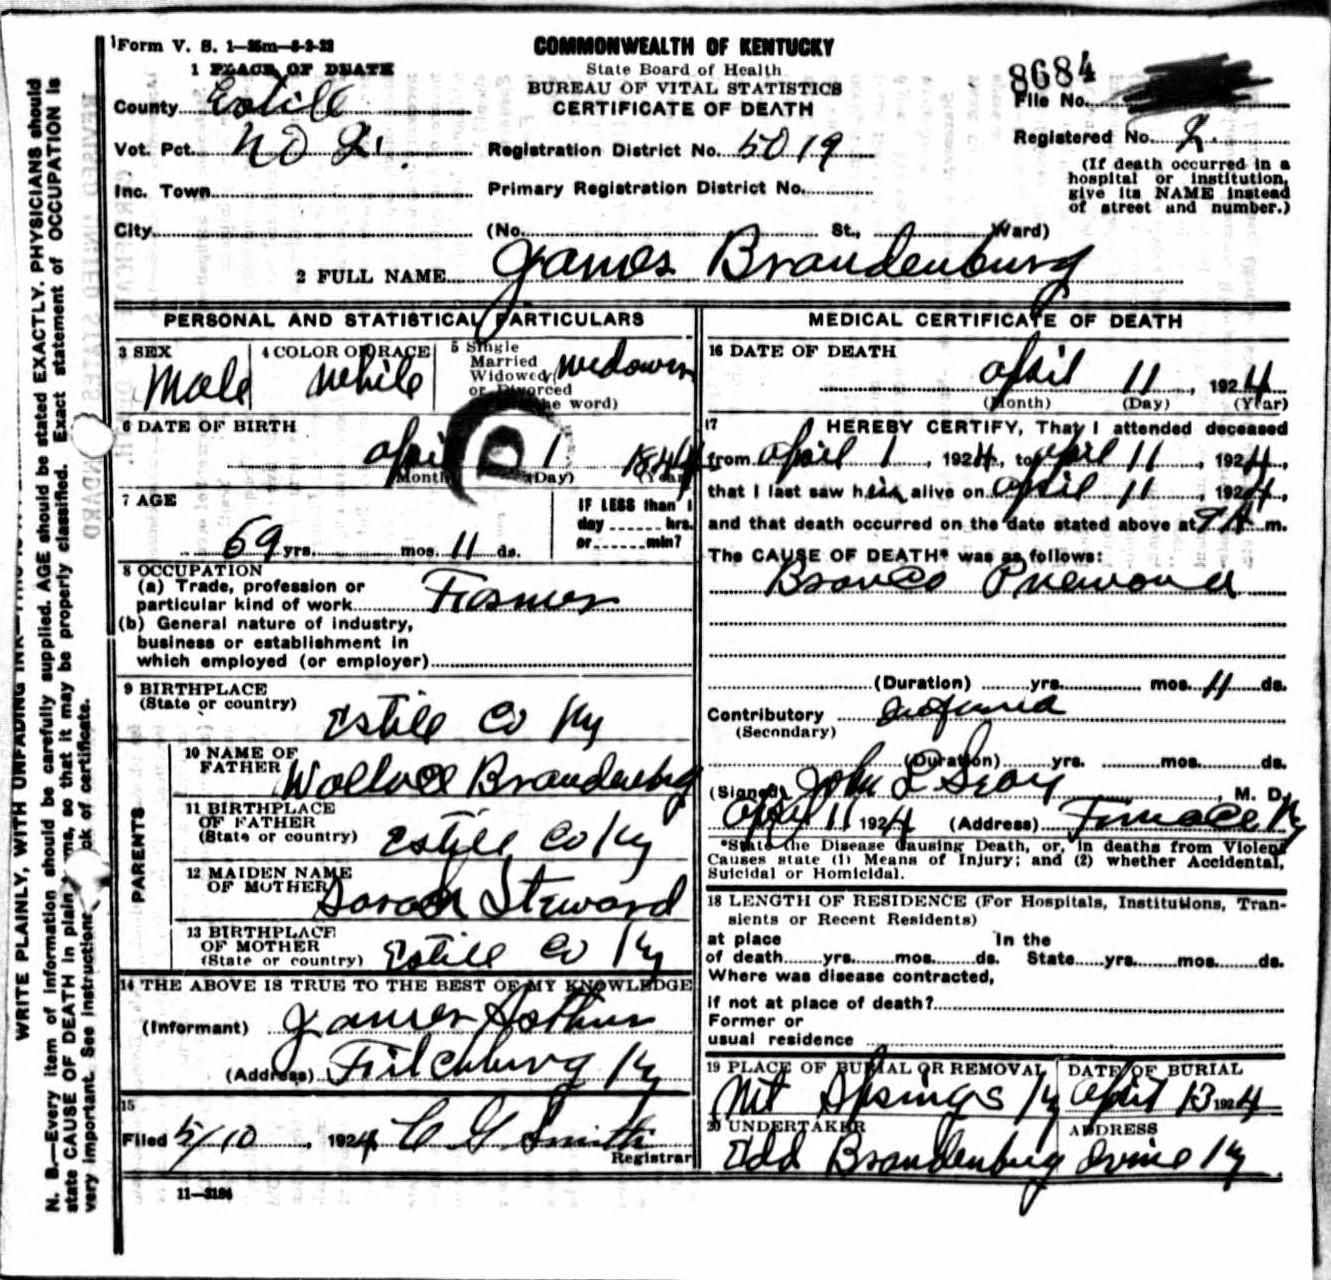 Form V. S. 1—25m—6-2-22
COMMONWEALTH OF KENTUCKY
State Board of Health
BUREAU OF VITAL STATISTICS
CERTIFICATE OF DEATH
8684
File No.
Registered No. 2.
(If death occurred in a
hospital or institution,
give its NAME instead
of street and number.)
1 PLACE OF DEATH
County Estill
Vot. Pct. No 2. Registration District No. 5019
Inc. Town Primary Registration District No.
City (No. St., Ward)
2 FULL NAME James Brandenburg
PERSONAL AND STATISTICAL PARTICULARS
3 SEX Male
4 COLOR OR RACE White
5 Single
Married
Widowed
or Divorced
the word)
D
6 DATE OF BIRTH
April 1 1844
(Month) (Day) (Year)
7 AGE
69 yrs. mos. 11 ds.
IF LESS than 1
day hrs.
or min?
8 OCCUPATION
(a) Trade, profession or
particular kind of work Farmer
(b) General nature of industry,
business or establishment in
which employed (or employer)
9 BIRTHPLACE
(State or country)
Estill Co Ky
PARENTS
10 NAME OF
FATHER Wallace Brandenburg
11 BIRTHPLACE
OF FATHER
(State or country) Estill Co Ky
12 MAIDEN NAME
OF MOTHER Sarah Steward
13 BIRTHPLACE
OF MOTHER
(State or country) Estill Co Ky
14 THE ABOVE IS TRUE TO THE BEST OF MY KNOWLEDGE
(Informant) James Arthur
(Address) Fitchburg Ky
15
Filed 5/10, 1924 C G Smith
Registrar
11—3184
MEDICAL CERTIFICATE OF DEATH
16 DATE OF DEATH
April 11, 1924
(Month) (Day) (Year)
17 HEREBY CERTIFY, That I attended deceased
from April 1, 1924, to April 11, 1924,
that I last saw him alive on April 11, 1924,
and that death occurred on the date stated above at 9 A m.
The CAUSE OF DEATH* was as follows:
Pneumonia
(Duration) yrs. mos. 11 ds.
Contributory
(Secondary)
(Duration) yrs. mos. ds.
(Signed) John L , M. D.
April 11 1924 (Address) Furnace Ky
*State the Disease Causing Death, or, in deaths from Violent
Causes state (1) Means of Injury; and (2) whether Accidental,
Suicidal or Homicidal.
18 LENGTH OF RESIDENCE (For Hospitals, Institutions, Tran-
sients or Recent Residents)
at place In the
of death yrs. mos. ds. State yrs. mos. ds.
Where was disease contracted,
if not at place of death?
Former or
usual residence
19 PLACE OF BURIAL OR REMOVAL DATE OF BURIAL
Mt Springs Ky April 13 1924
20 UNDERTAKER ADDRESS
Edd Brandenburg Irvine Ky
WRITE PLAINLY, WITH UNFADING INK
N. B.—Every item of information should be carefully supplied. AGE should be stated EXACTLY. PHYSICIANS should
state CAUSE OF DEATH in plain terms, so that it may be properly classified. Exact statement of OCCUPATION is
very important. See instructions back of certificate.